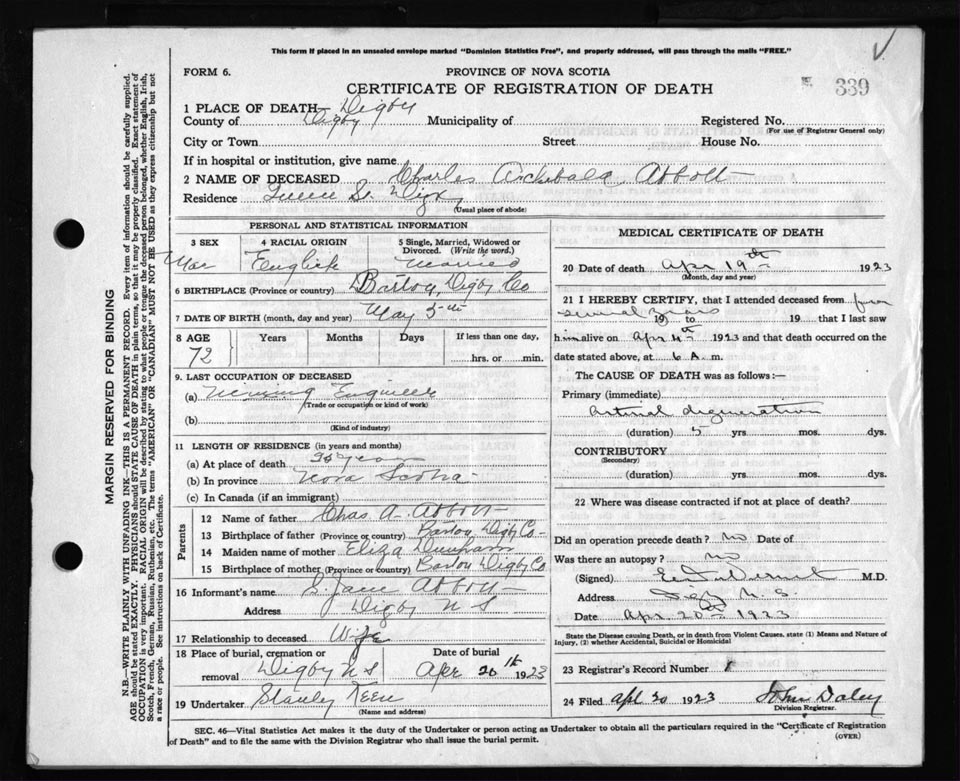 This form if placed in an unsealed envelope marked "Dominion Statistics Free", and properly addressed, will pass through the mails "FREE."
FORM 6.
PROVINCE OF NOVA SCOTIA
339
CERTIFICATE OF REGISTRATION OF DEATH
1 PLACE OF DEATH Digby
County of Digby Municipality of Registered No.
(For use of Registrar General only)
City or Town Street House No.
If in hospital or institution, give name
2 NAME OF DECEASED Charles Archibald Abbott
Residence Queen St. Digby
(Usual place of abode)
PERSONAL AND STATISTICAL INFORMATION
3 SEX 4 RACIAL ORIGIN 5 Single, Married, Widowed or Divorced. (Write the word.)
English Married
6 BIRTHPLACE (Province or country) Barton, Digby Co
7 DATE OF BIRTH (month, day and year) May 5th
8 AGE Years Months Days If less than one day,
72 hrs. or min.
9. LAST OCCUPATION OF DECEASED
(a) Engineer
(Trade or occupation or kind of work)
(b)
(Kind of industry)
11 LENGTH OF RESIDENCE (in years and months)
(a) At place of death years
(b) In province Nova Scotia
(c) In Canada (if an immigrant)
Parents
12 Name of father Chas A. Abbott
13 Birthplace of father (Province or country) Barton Digby Co
14 Maiden name of mother Eliza Dunham
15 Birthplace of mother (Province or country) Barton Digby Co
16 Informant's name S. Jane Abbott
Address Digby N S
17 Relationship to deceased Wife
18 Place of burial, cremation or removal Digby N S
Date of burial Apr 20th 1923
19 Undertaker Stanley
(Name and address)
MEDICAL CERTIFICATE OF DEATH
20 Date of death Apr 19th 1923
(Month, day and year)
21 I HEREBY CERTIFY, that I attended deceased from for
several years 19 to 19 that I last saw
him alive on Apr 1923 and that death occurred on
date stated above, at 6 A. m.
The CAUSE OF DEATH was as follows:—
Primary (immediate)
Arterial degeneration
(duration) 5 yrs. mos. dys.
CONTRIBUTORY
(Secondary)
(duration) yrs. mos. dys.
22 Where was disease contracted if not at place of death?
Did an operation precede death? No Date of
Was there an autopsy? No
(Signed) M.D.
Address Digby N. S.
Date Apr. 20th 1923
State the Disease causing Death, or in death from Violent Causes, state (1) Means and Nature of Injury, (2) whether Accidental, Suicidal or Homicidal
23 Registrar's Record Number
24 Filed Apl 20 1923 John Daley
Division Registrar.
SEC. 46—Vital Statistics Act makes it the duty of the Undertaker or person acting as Undertaker to obtain all the particulars required in the "Certificate of Registration
of Death" and to file the same with the Division Registrar who shall issue the burial permit.
(OVER)
MARGIN RESERVED FOR BINDING
N.B.—WRITE PLAINLY WITH UNFADING INK—THIS IS A PERMANENT RECORD. Every item of information should be carefully supplied.
AGE should be stated EXACTLY. PHYSICIANS should STATE CAUSE OF DEATH in plain terms, so that it may be properly classified. Exact statement of
OCCUPATION is very important. RACIAL ORIGIN will be described by stating to what people or tongue the deceased person belonged, whether English, Irish,
Scotch, French, German, Russian, Ruthenian, etc. The terms "AMERICAN" OR "CANADIAN" MUST NOT BE USED as they express citizenship but not
a race or people. See instructions on back of Certificate.